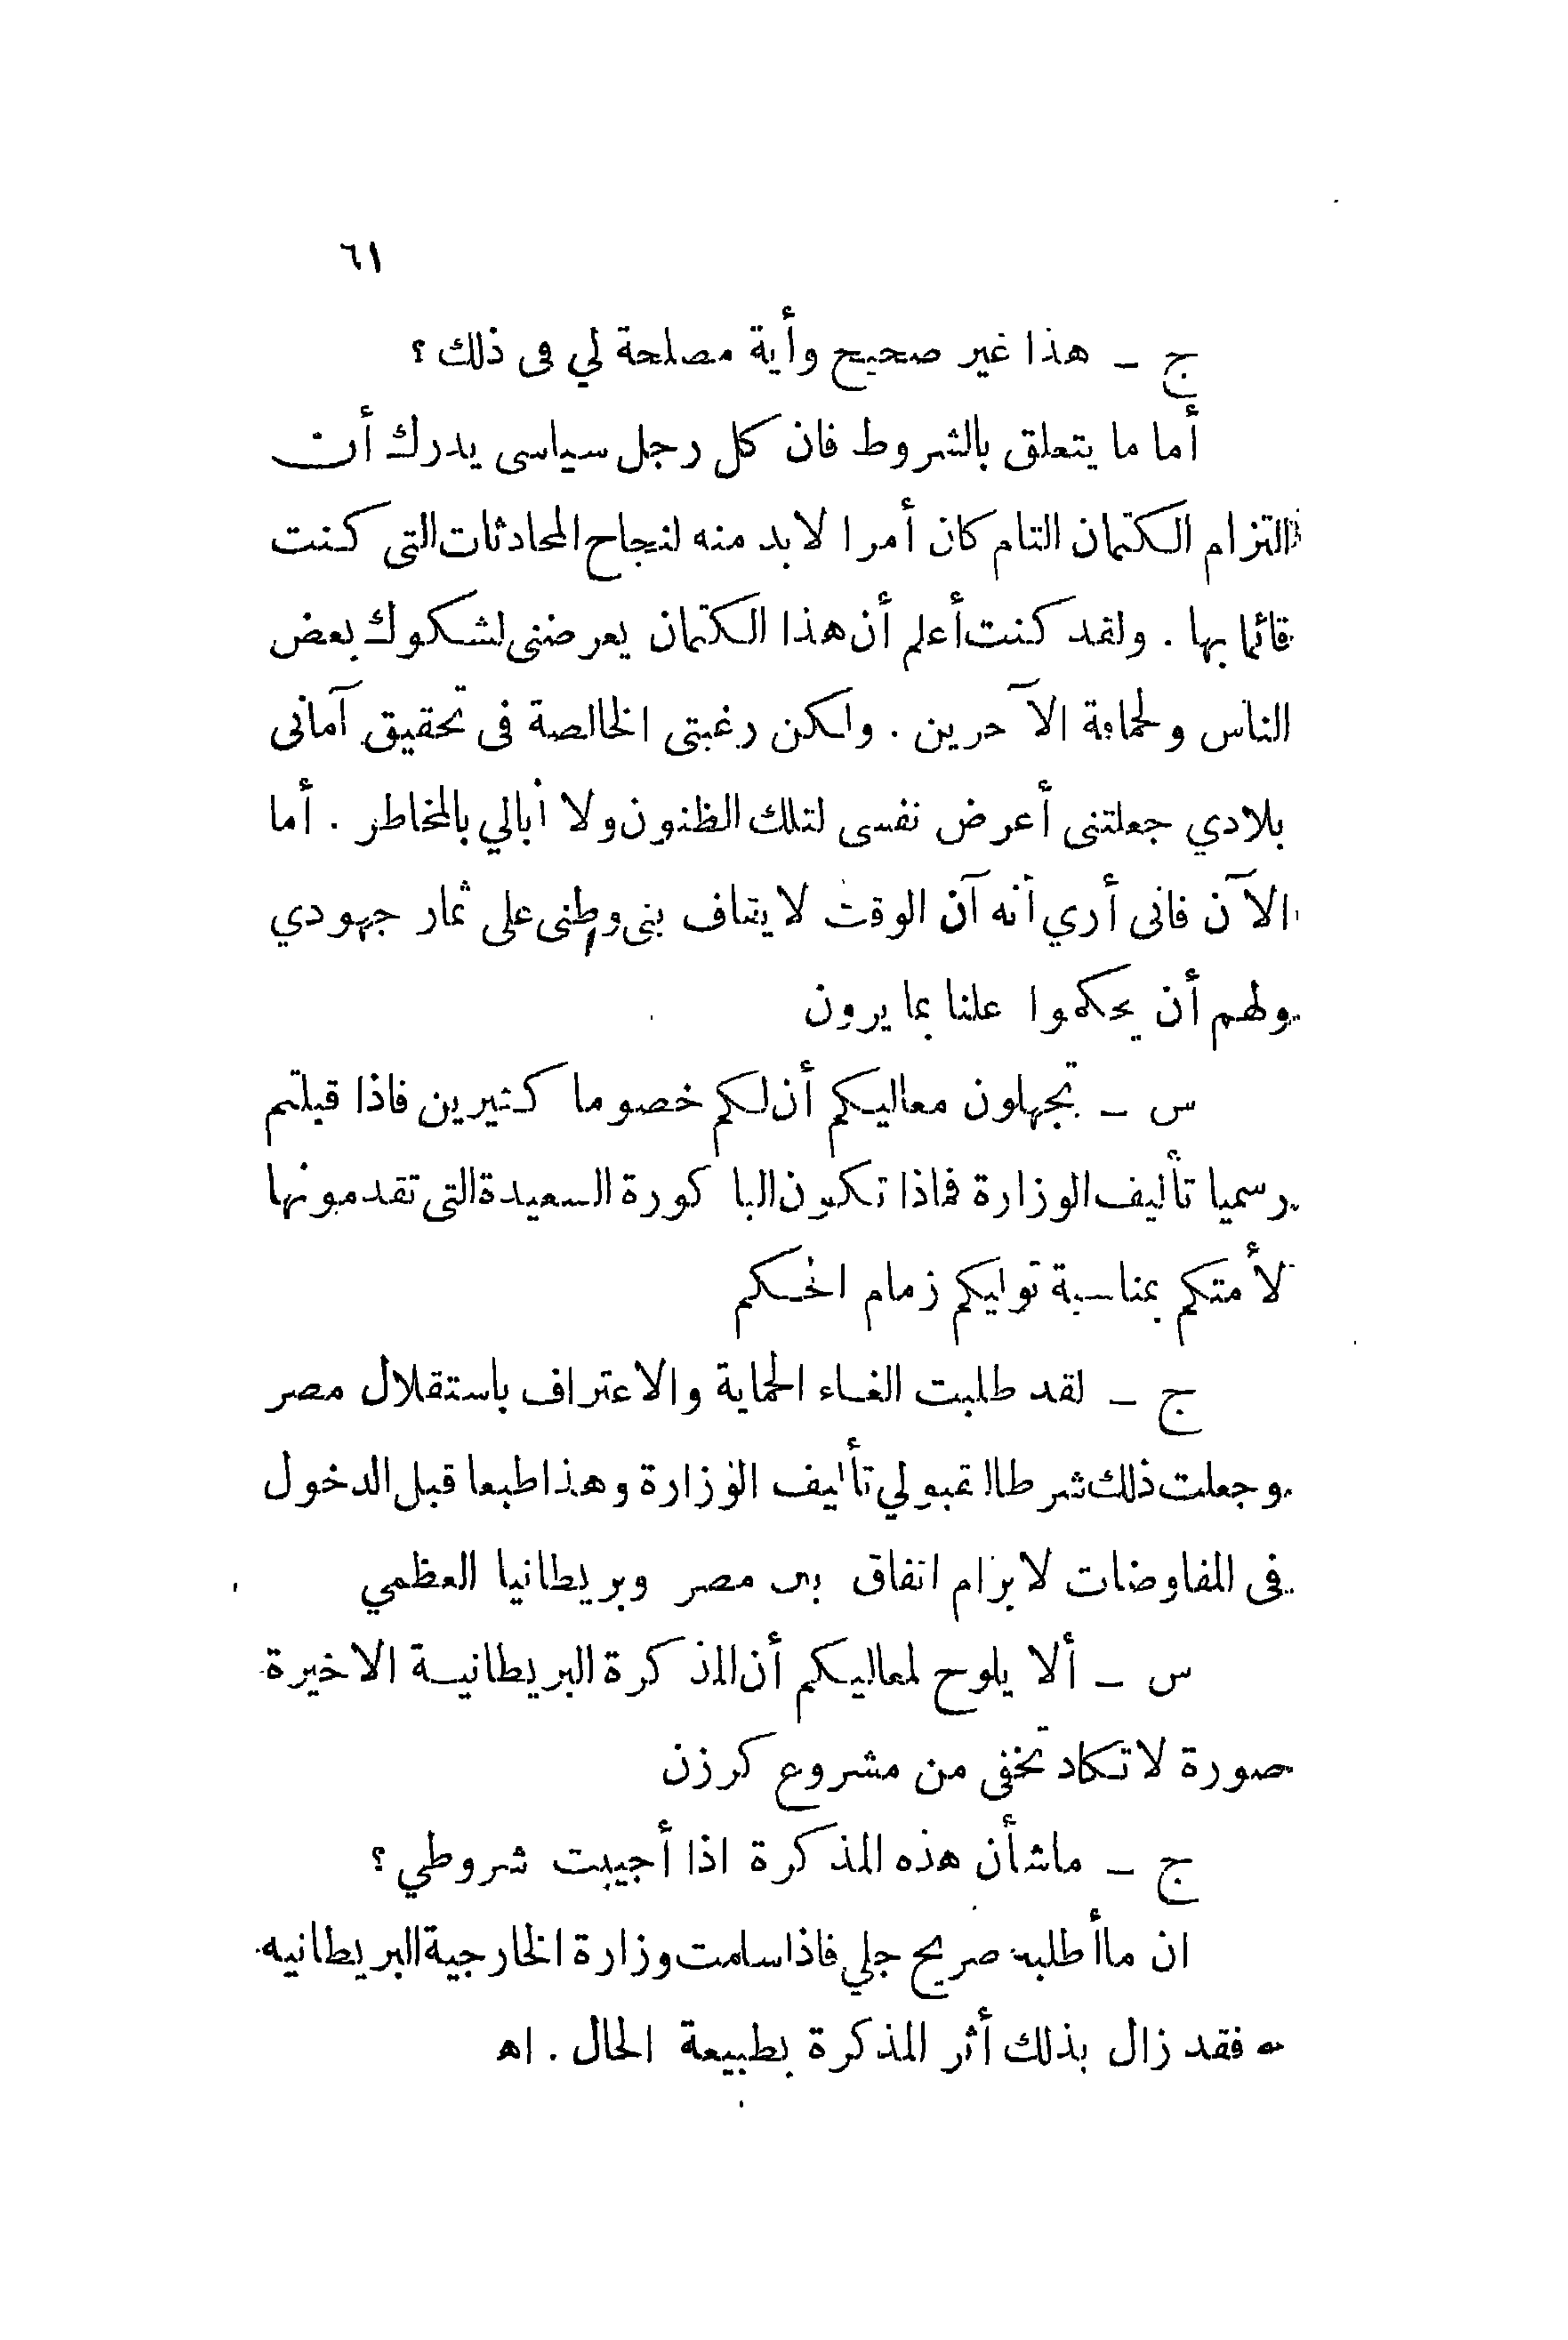 ٦١
ج ـ هذا غير صحيح وأية مصلحة لي فى ذلك ؟
أما ما يتعلق بالشروط فان كل رجل سياسى يدرك أن
التزام الكتمان التام كان أمرا لابد منه لنجاح المحادثات التى كنت
قائما بها . ولقد كنت أعلم أن هذا الكتمان يعرضنى لشكوك بعض
الناس ولحماقة الآخرين . ولكن رغبتى الخالصة فى تحقيق آمانى
بلادي جعلتنى أعرض نفسى لتلك الظنون ولا أبالي بالمخاطر . أما
الآن فانى أري أنه آن الوقت لايقاف بنى وطنى على ثمار جهودي
ولهم أن يحكموا علنا بما يرون
س ـ تجهلون معاليكم أن لكم خصوما كثيرين فاذا قبلتم
رسميا تأليف الوزارة فماذا تكون الباكورة السعيدة التى تقدمونها
لأمتكم بمناسبة توليكم زمام الحكم
ج ـ لقد طلبت الغاء الحماية والاعتراف باستقلال مصر
وجعلت ذلك شرطا لقبولي تأليف الوزارة وهذا طبعا قبل الدخول
فى المفاوضات لابرام اتفاق بين مصر وبريطانيا العظمي
س ـ ألا يلوح لمعاليكم أن المذكرة البريطانية الاخيرة
صورة لاتكاد تخفى من مشروع كرزن
ج ـ ماشأن هذه المذكرة اذا أجيبت شروطي ؟
ان ماأطلبه صريح جلي فاذا سلمت وزارة الخارجية البريطانيه
به فقد زال بذلك أثر المذكرة بطبيعة الحال . اه